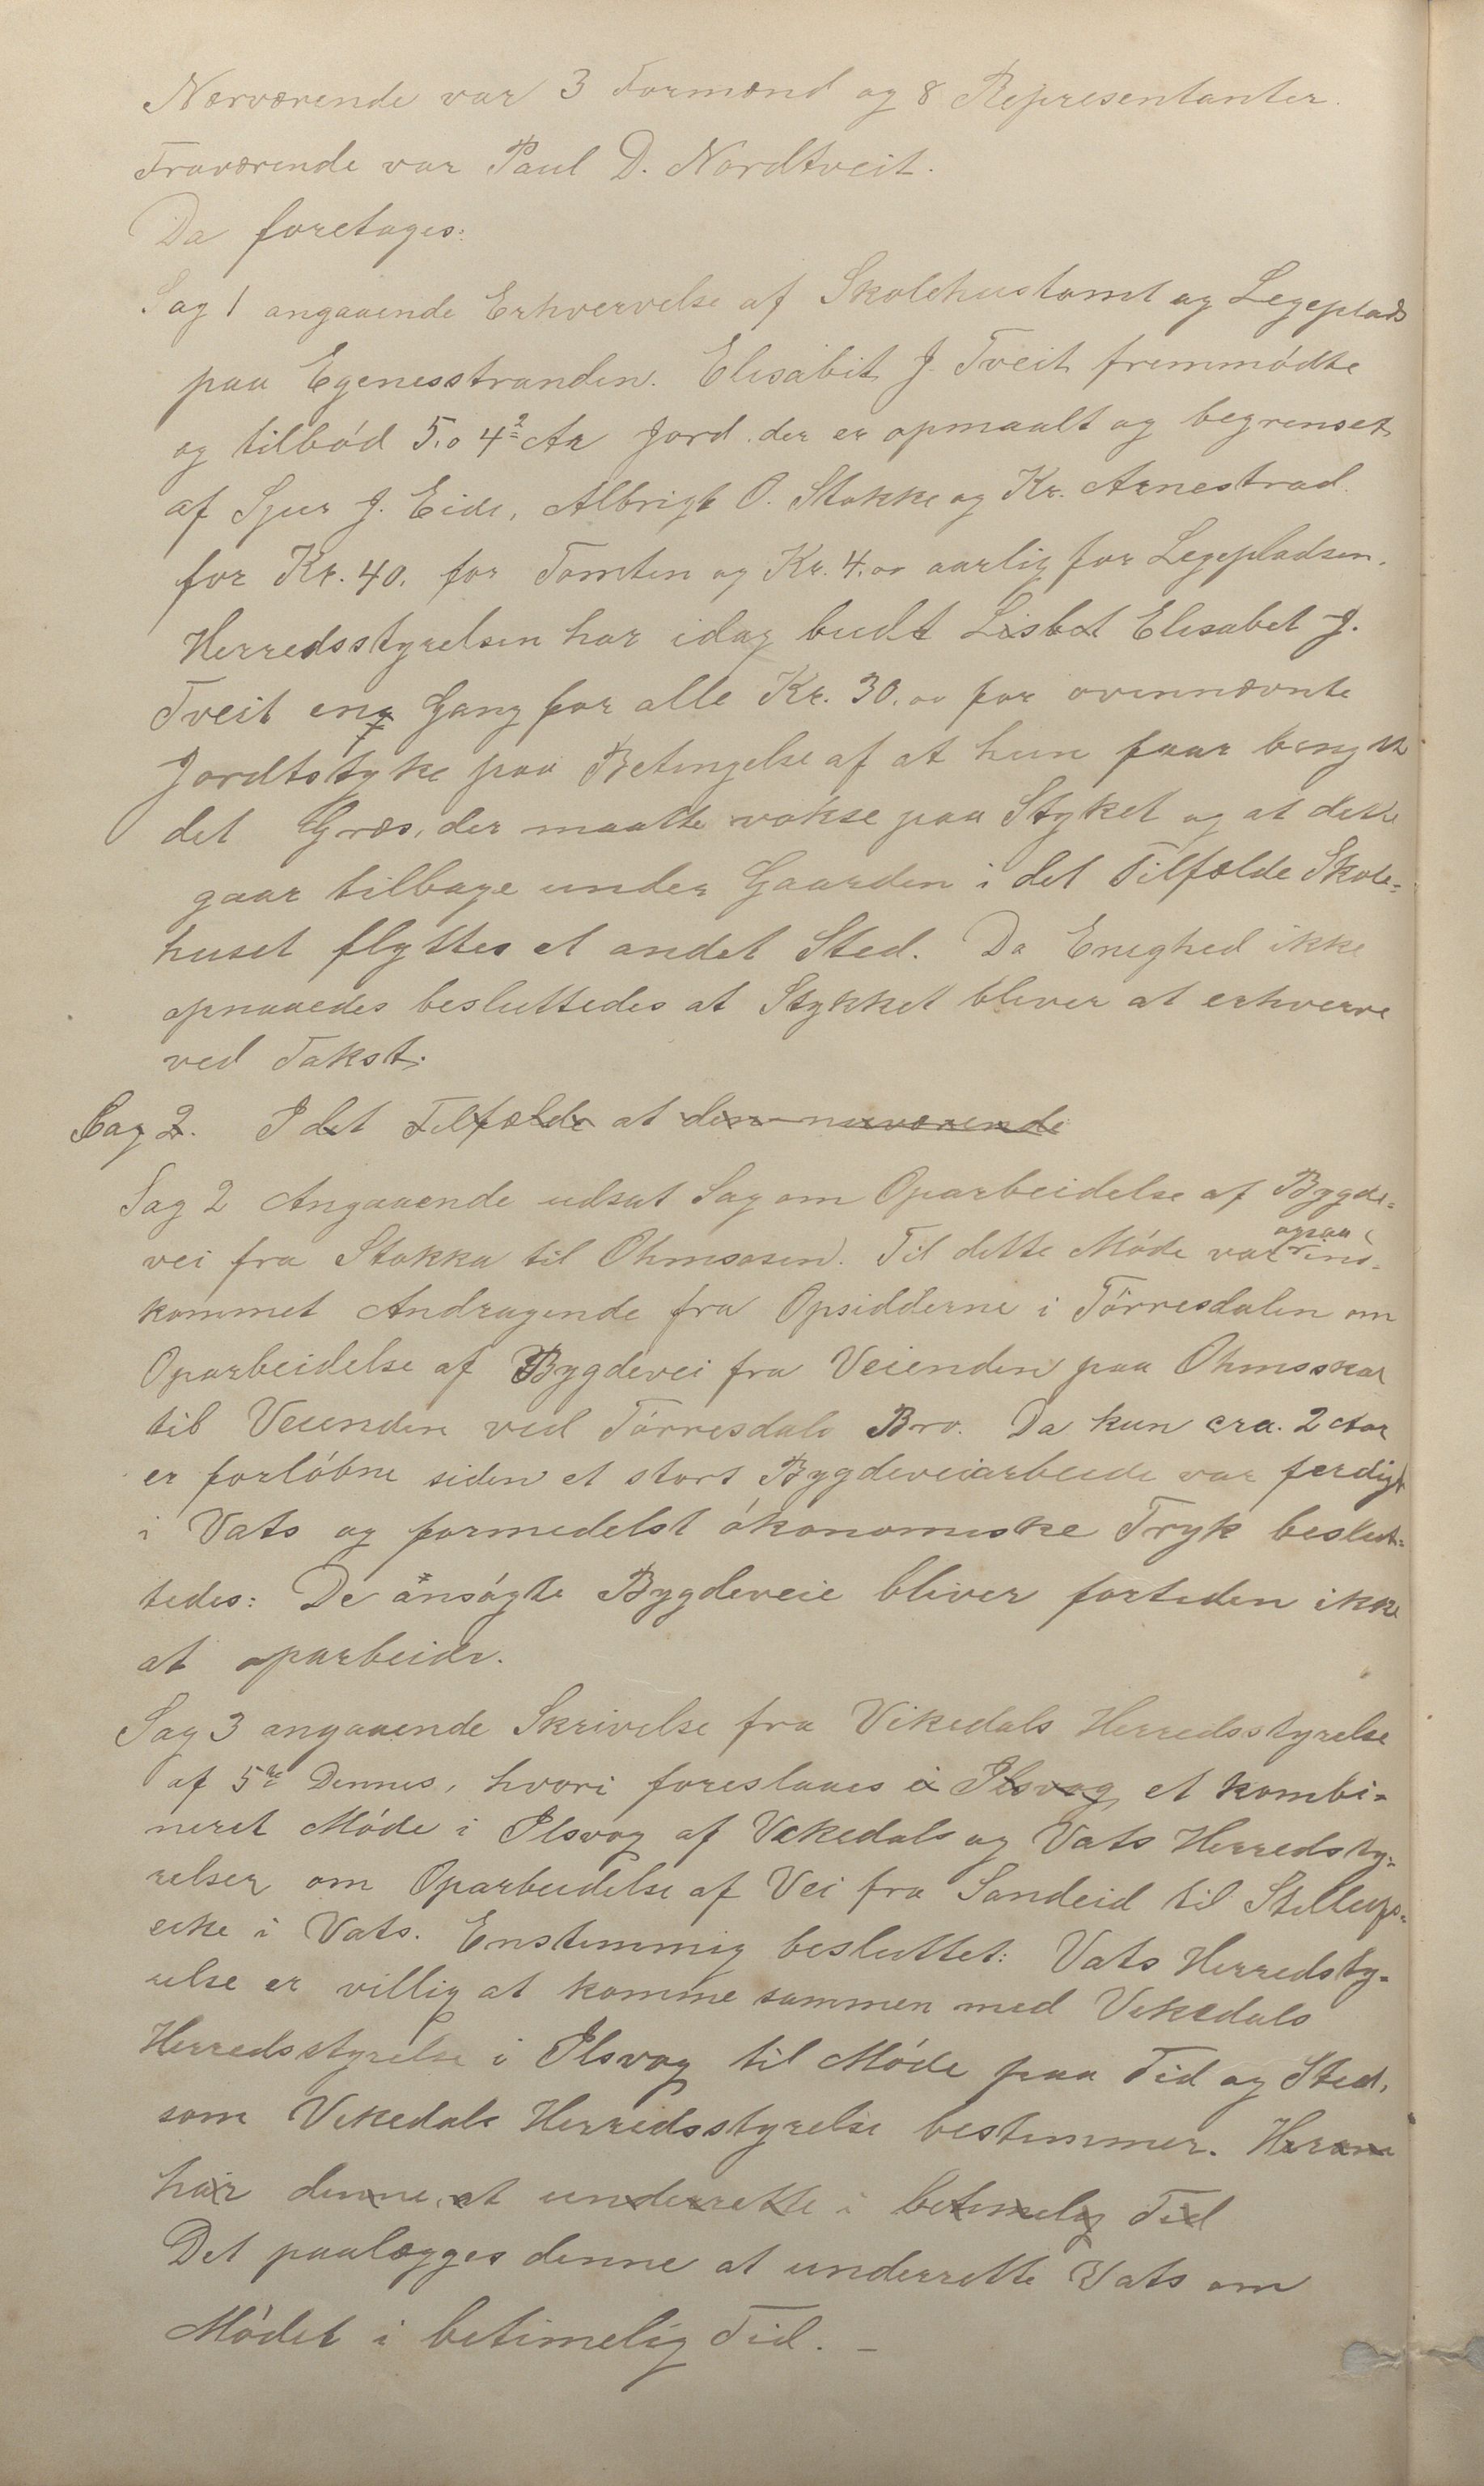 Nærværende var 3 Formænd og 8 Representanter.
Fraværende var Paul D. Nordtveit.
Da foretages:
Sag 1 angaaende Erhvervelse af Skolehustomt og Legeplads
paa Egenesstranden. Elisabit J. Tveit fremmødte
og tilbød 5.0 4² Ar Jord der er opmaalt og begrenset
af Sjur J. Eide, Albrigt O. Stokke og Kr. Arnestrad.
for Kr. 40. for Tomten og Kr. 4.00 aarlig for Legepladsen.
Herredsstyrelsen har idag budt Lisbet Elisabet J.
Tveit eng Gang for alle Kr. 30.00 for ovennævnte
Jordtstyke paa Betingelse af at hun faar benytte
det Græs, der maatte vokse paa Styket og at dette
gaar tilbage under Gaarden i det Tilfælde Skole=
huset flyttes et andet Sted. Da Enighed ikke
opnaaedes besluttedes at Stykket bliver at erhverve
ved Takst.
Sag 2. I det Tilfælde at den nuværende
Sag 2 Angaaende udsat Sag om Oparbeidelse af Bygde=
vei fra Stokka til Ohmsosen. Til dette Møde var ogsaa ind=
kommet Andragende fra Opsidderne i Tørresdalen om
Oparbeidelse af Bygdevei fra Veienden paa Ohmsskar
til Veienden ved Tørresdals Bro. Da kun cra. 2 Aar
er forløbne siden et stort Bygdeveiarbeide var ferdigt
i Vats og formedelst økonomiske Tryk beslut=
tedes: De ansøgte Bygdeveie bliver fortiden ikke
at oparbeide.
Sag 3 angaaende Skrivelse fra Vikedals Herredsstyrelse
af 5te Dennes, hvori foreslaaes i Ilsvog et kombi=
neret Møde i Ilsvog af Vikedals og Vats Herredsty=
relser om Oparbeidelse af Vei fra Sandeid til Stillups=
eike i Vats. Enstemmig besluttet: Vats Herredsty=
relse er villig at komme sammen med Vikedals
Herredsstyrelse i Ilsvog til Møde paa Tid og Sted,
som Vikedals Herredsstyrelse bestemmer. Herom
har denne at underrette i betimelig Tid
Det paalægges denne at underrette Vats om
Mødet i betimelig Tid. –